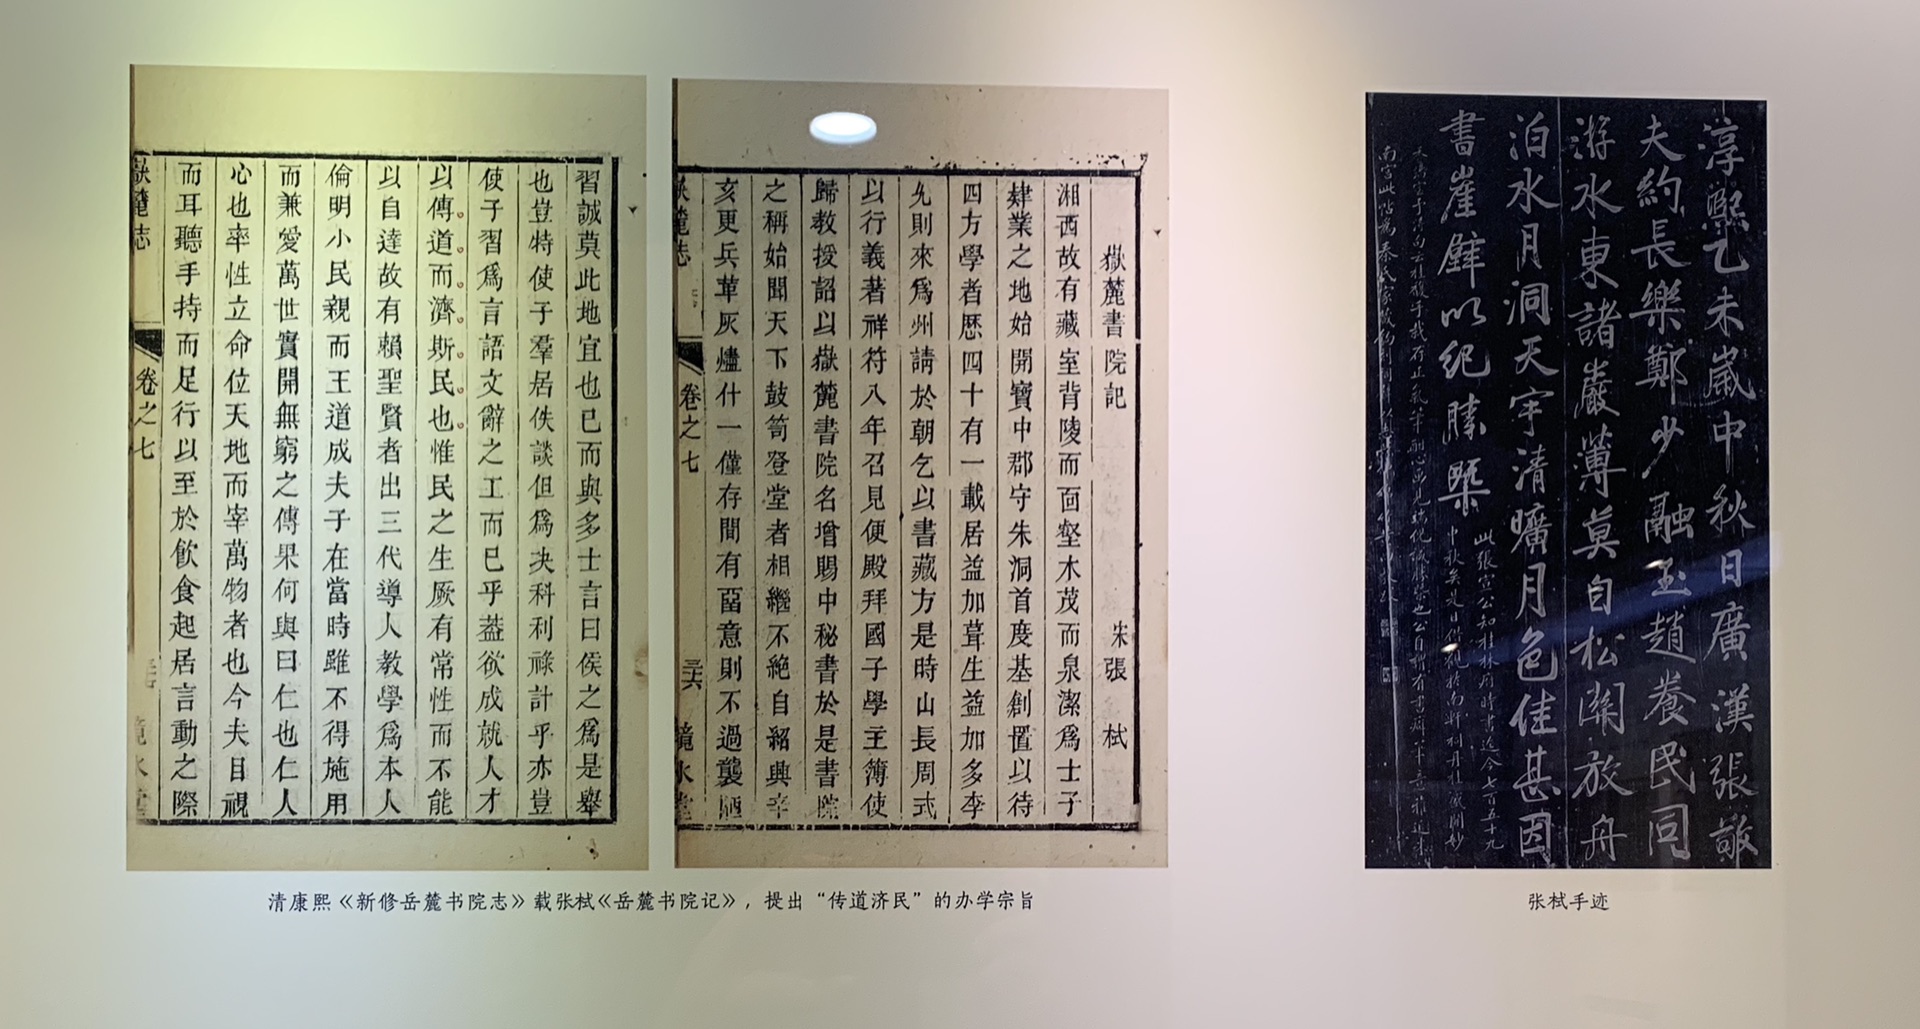 嶽麓書院記 宋張栻
湘西故有藏室背陵而面壑木茂而泉潔爲士子
肄業之地始開寶中郡守朱洞首度基創置以待
四方學者歷四十有一載居益加葺生益加多李
允則來爲州請於朝乞以書藏方是時山長周式
以行義著祥符八年召見便殿拜國子學主簿使
歸教授詔以嶽麓書院名增賜中秘書於是書院
之稱始聞天下鼓笥登堂者相繼不絕自紹興辛
亥更兵革灰燼什一僅存間有留意則不過襲陋
嶽麓志 卷之七 三六 鏡水堂
習誠莫此地宜也已而與多士言曰侯之爲是舉
也豈特使子羣居佚談但爲决科利祿計乎亦豈
使子習爲言語文辭之工而已乎蓋欲成就人才
以傳道而濟斯民也惟民之生厥有常性而不能
以自達故有賴聖賢者出三代導人教學爲本人
倫明小民親而王道成夫子在當時雖不得施用
而兼愛萬世實開無窮之傳果何與曰仁也仁人
心也率性立命位天地而宰萬物者也今夫目視
而耳聽手持而足行以至於飲食起居言動之際
嶽麓志 卷之七 鏡水堂
清康熙《新修岳麓书院志》载张栻《岳麓书院记》，提出“传道济民”的办学宗旨
淳熙乙未歲中秋日廣漢張敬
夫約長樂鄭少融玉趙養民同
游水東諸巖薄莫自松關放舟
泊水月洞天宇清曠月色佳甚因
書崖壁以紀勝槩
此張宣公知桂林府時書迄今七百五十九
张栻手迹